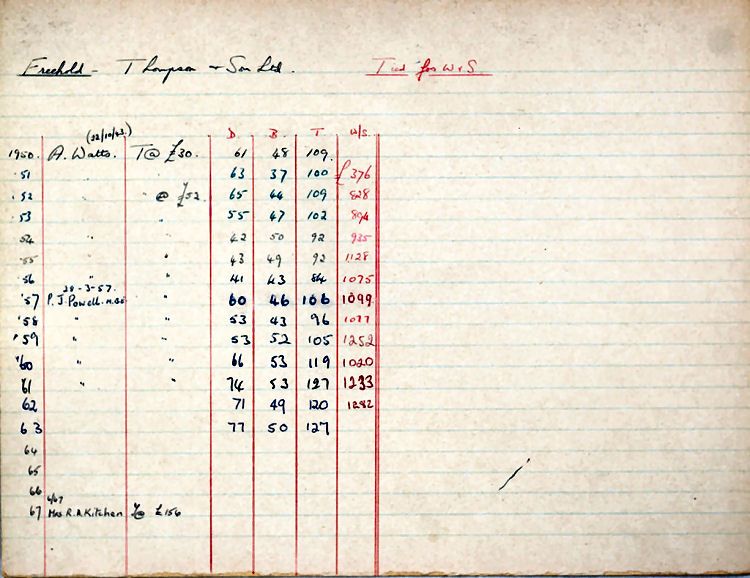 Freehold - Thompson & Son Ltd. Tied for W & S.
(22/10/43.) D. B. T W/S.
1950. A. Watts. T@ £30. 61 48 109
'51 " " 63 37 100 £376
'52 " " @ £52. 65 44 109 828
'53 " " 55 47 102 894
54 " " 42 50 92 935
'55 " " 43 49 92 1128
'56 " " 41 43 84 1075
28-3-57.
'57 P. J. Powell. " 60 46 106 1099
'58 " " 53 43 96 1077
'59 " " 53 52 105 1252
'60 " " 66 53 119 1020
'61 " " 74 53 127 1233
62 71 49 120 1282
63 77 50 127
64
65
66
6/67
67 Mrs R. A Kitchen T@ £156